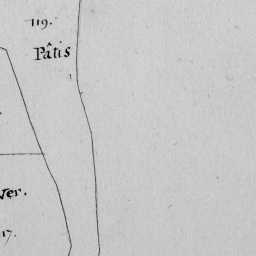 119.
Pâtis
ver.
17.